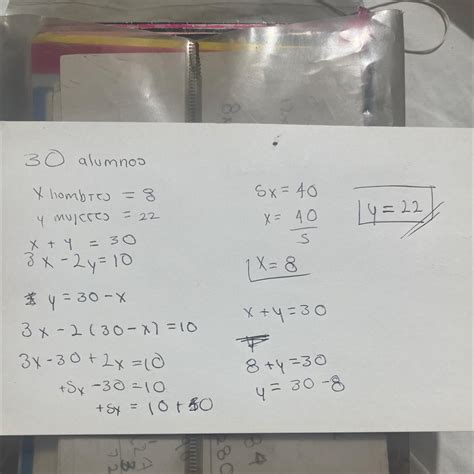 30 alumnos
x hombres = 8
y mujeres = 22
x + y = 30
3x - 2y = 10
y = 30 - x
3x - 2(30 - x) = 10
3x - 30 + 2x = 10
+5x - 30 = 10
+5x = 10 + 30
5x = 40
x = 40
5
x = 8
x + y = 30
8 + y = 30
y = 30 - 8
y = 22